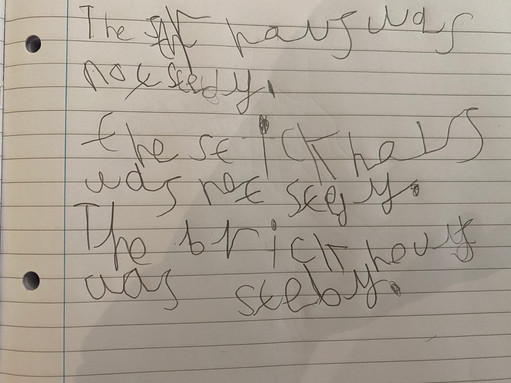 The haus was
not steedy.
the stick haus
was not steey.
The brick hous
was steeby.